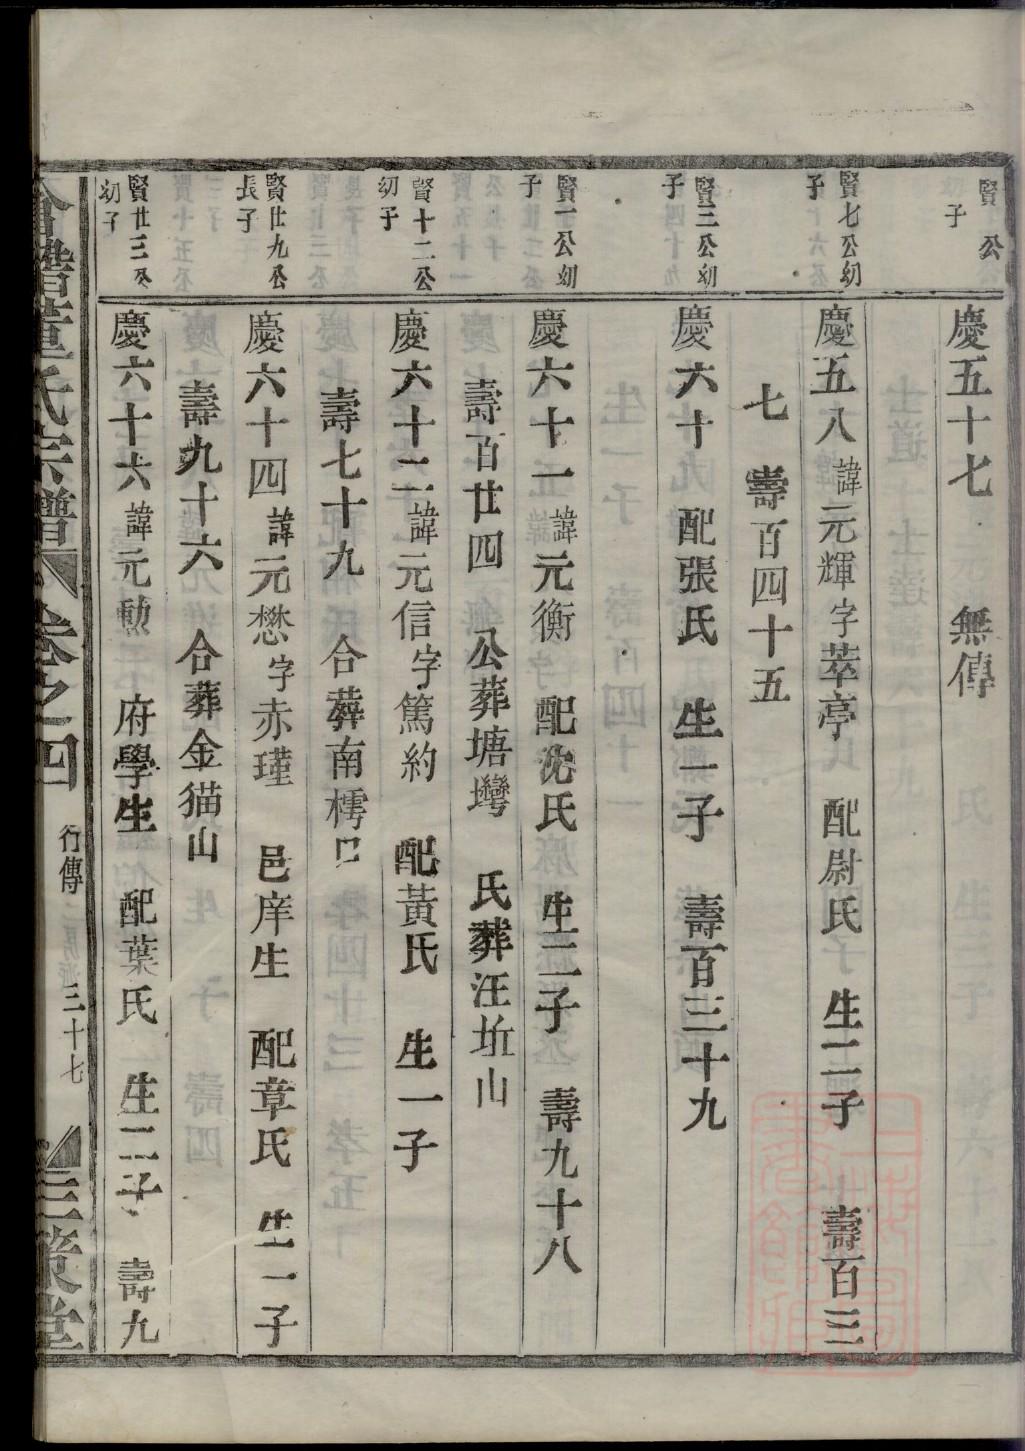 賢 公
子
慶五十七 無傳
賢七公幼
子
慶五八諱元輝字萃亭 配尉氏 生二子 壽百三
七 壽百四十五
賢三公幼
子
慶六十 配張氏 生一子 壽百三十九
賢一公幼
子
慶六十一諱元衡 配沈氏 生二子 壽九十八
壽百廿四 公葬塘灣 氏葬汪坵山
賢十二公
幼子
慶六十二諱元信字篤約 配黃氏 生一子
壽七十九 合葬南樗
賢廿九公
長子
慶六十四諱元懋字赤瑾 邑庠生 配章氏 生一子
壽九十六 合葬金猫山
賢廿三公
幼子
慶六十六諱元勳 府學生 配葉氏 生二子 壽九
會譜董氏宗譜 卷之四 行傳 三十七 三策堂